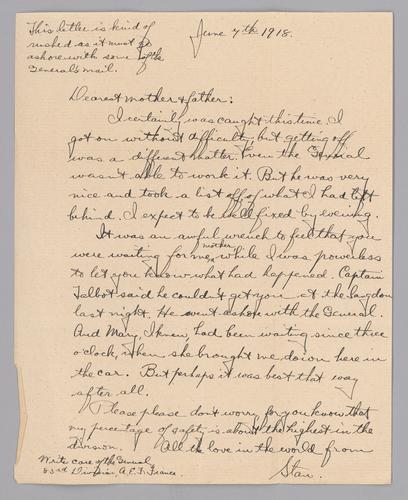 This letter is kind of
rushed as it must go
ashore with some of the
General's mail.
June 7th 1918.
Dearest mother & father:
I certainly was caught this time. I
got on without difficulty, but getting off
was a different matter. Even the General
wasn't able to work it. But he was very
nice and took a list off, of what I had left
behind. I expect to be well fixed by evening.
It was an awful wrench to feel that you
were waiting for me, mother, while I was powerless
to let you know what had happened. Captain
Talbot said he couldn't get you at the
last night. He went ashore with the General.
And Mary, I know, had been waiting since three
o'clock, when she brought me down here in
the car. But perhaps it was best that way
after all.
Please please don't worry, for you know that
my percentage of safety is about the highest in the
division. All the love in the world from
Stan.
Write care of the General
83rd Division, A.E.F. France